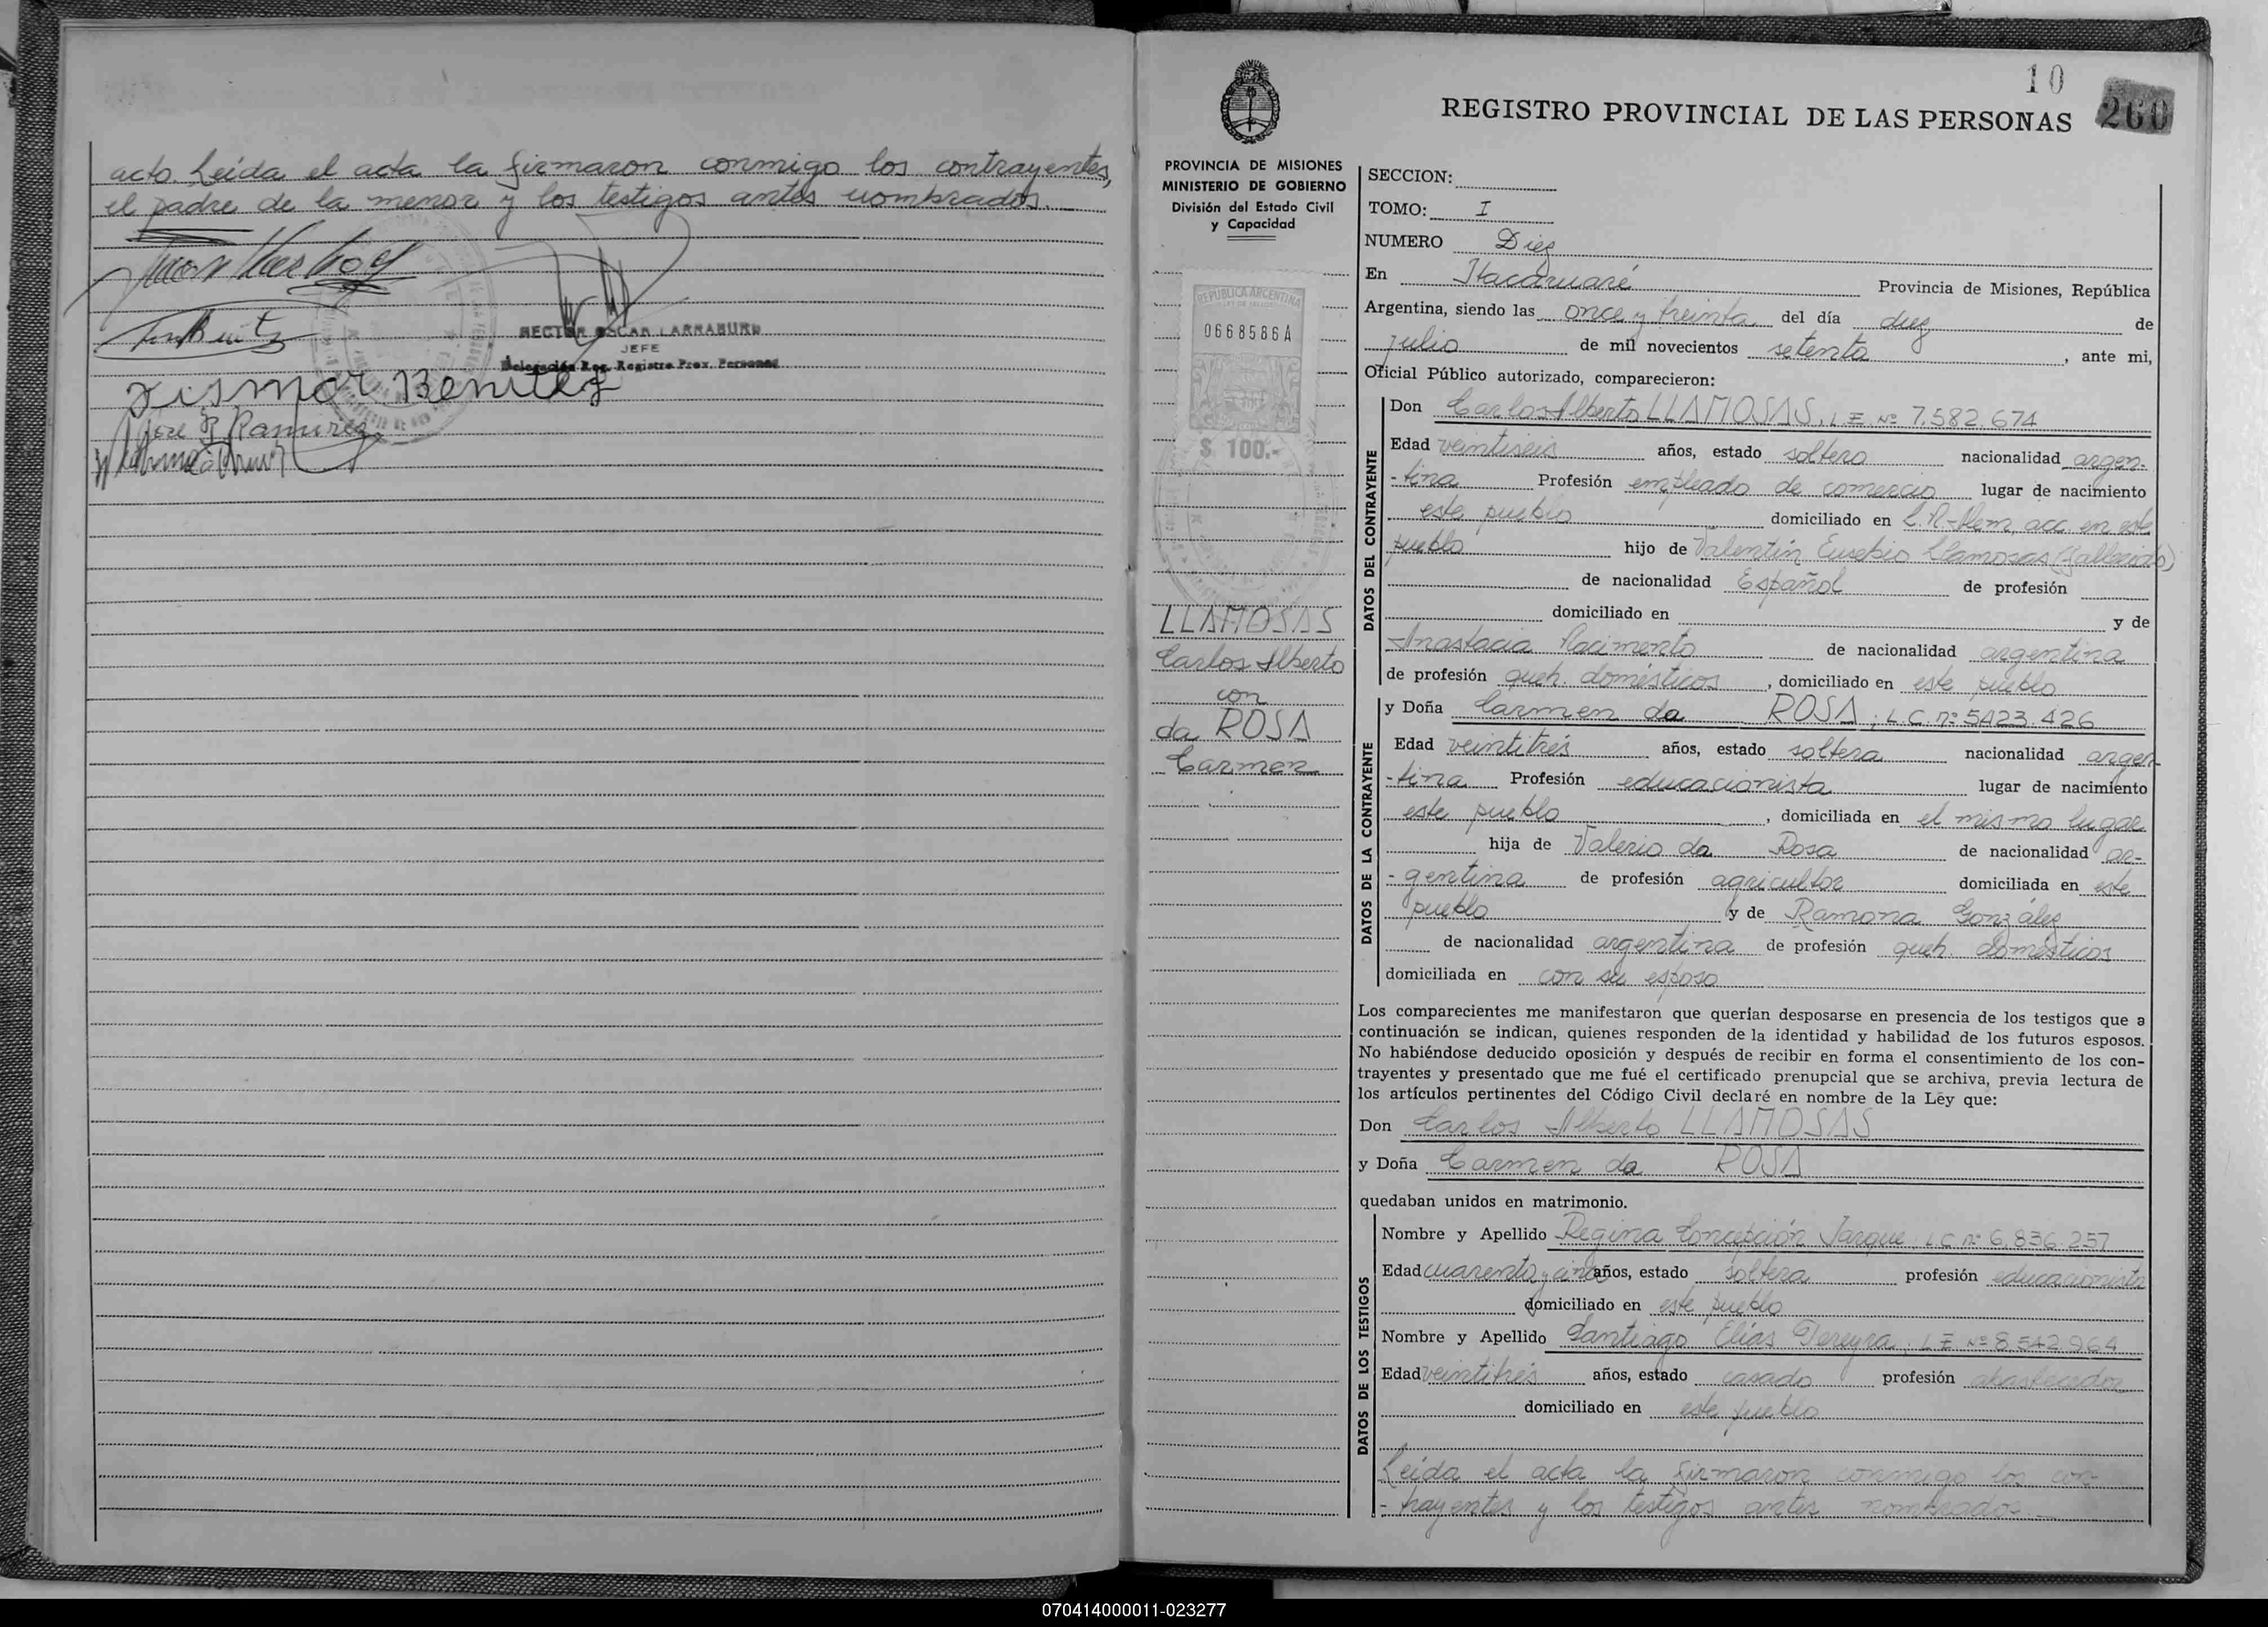 acto. Leída el acta la firmaron conmigo los contrayentes,
el padre de la menor y los testigos antes nombrados.
HECTOR OSCAR LARRABURU
JEFE
Delegación Reg. Registro Prov. Personas
Benitez
José R Ramirez
10
260
REGISTRO PROVINCIAL DE LAS PERSONAS
PROVINCIA DE MISIONES
MINISTERIO DE GOBIERNO
División del Estado Civil
y Capacidad
REPUBLICA ARGENTINA
0668586A
$ 100.-
LLAMOSAS
Carlos Alberto
con
da ROSA
Carmen
SECCION:
TOMO: I
NUMERO Diez
En Itacaruaré Provincia de Misiones, República
Argentina, siendo las once y treinta del día diez de
julio de mil novecientos setenta, ante mi,
Oficial Público autorizado, comparecieron:
DATOS DEL CONTRAYENTE
Don Carlos Alberto LLAMOSAS, L.E. Nº 7.582.674
Edad veintiseis años, estado soltero nacionalidad argen-
-tina Profesión empleado de comercio lugar de nacimiento
este pueblo domiciliado en L.N. Alem, acc. en este
pueblo hijo de Valentín Eusebio Llamosas (fallecido)
de nacionalidad Español de profesión
domiciliado en y de
Anastacia Nacimento de nacionalidad argentina
de profesión queh. domésticos, domiciliado en este pueblo
DATOS DE LA CONTRAYENTE
y Doña Carmen da ROSA, L.C. nº 5423.426
Edad veintitrés años, estado soltera nacionalidad argen
-tina Profesión educacionista lugar de nacimiento
este pueblo, domiciliada en el mismo lugar
hija de Valerio da Rosa de nacionalidad ar-
-gentina de profesión agricultor domiciliada en este
pueblo y de Ramona González
de nacionalidad argentina de profesión queh. domésticos
domiciliada en con su esposo
Los comparecientes me manifestaron que querían desposarse en presencia de los testigos que a
continuación se indican, quienes responden de la identidad y habilidad de los futuros esposos.
No habiéndose deducido oposición y después de recibir en forma el consentimiento de los con-
trayentes y presentado que me fué el certificado prenupcial que se archiva, previa lectura de
los artículos pertinentes del Código Civil declaré en nombre de la Ley que:
Don Carlos Alberto LLAMOSAS
y Doña Carmen da ROSA
quedaban unidos en matrimonio.
DATOS DE LOS TESTIGOS
Nombre y Apellido Regina Concepción Jarque, L.C. nº 6.836.257
Edad cuarenta y cinco años, estado soltera profesión educacionista
domiciliado en este pueblo
Nombre y Apellido Santiago Elías Pereyra, L E Nº 8.542.964
Edad veintitrés años, estado casado profesión abastecedor
domiciliado en este pueblo
Leída el acta la firmaron conmigo los con-
-trayentes y los testigos antes nombrados
070414000011-023277